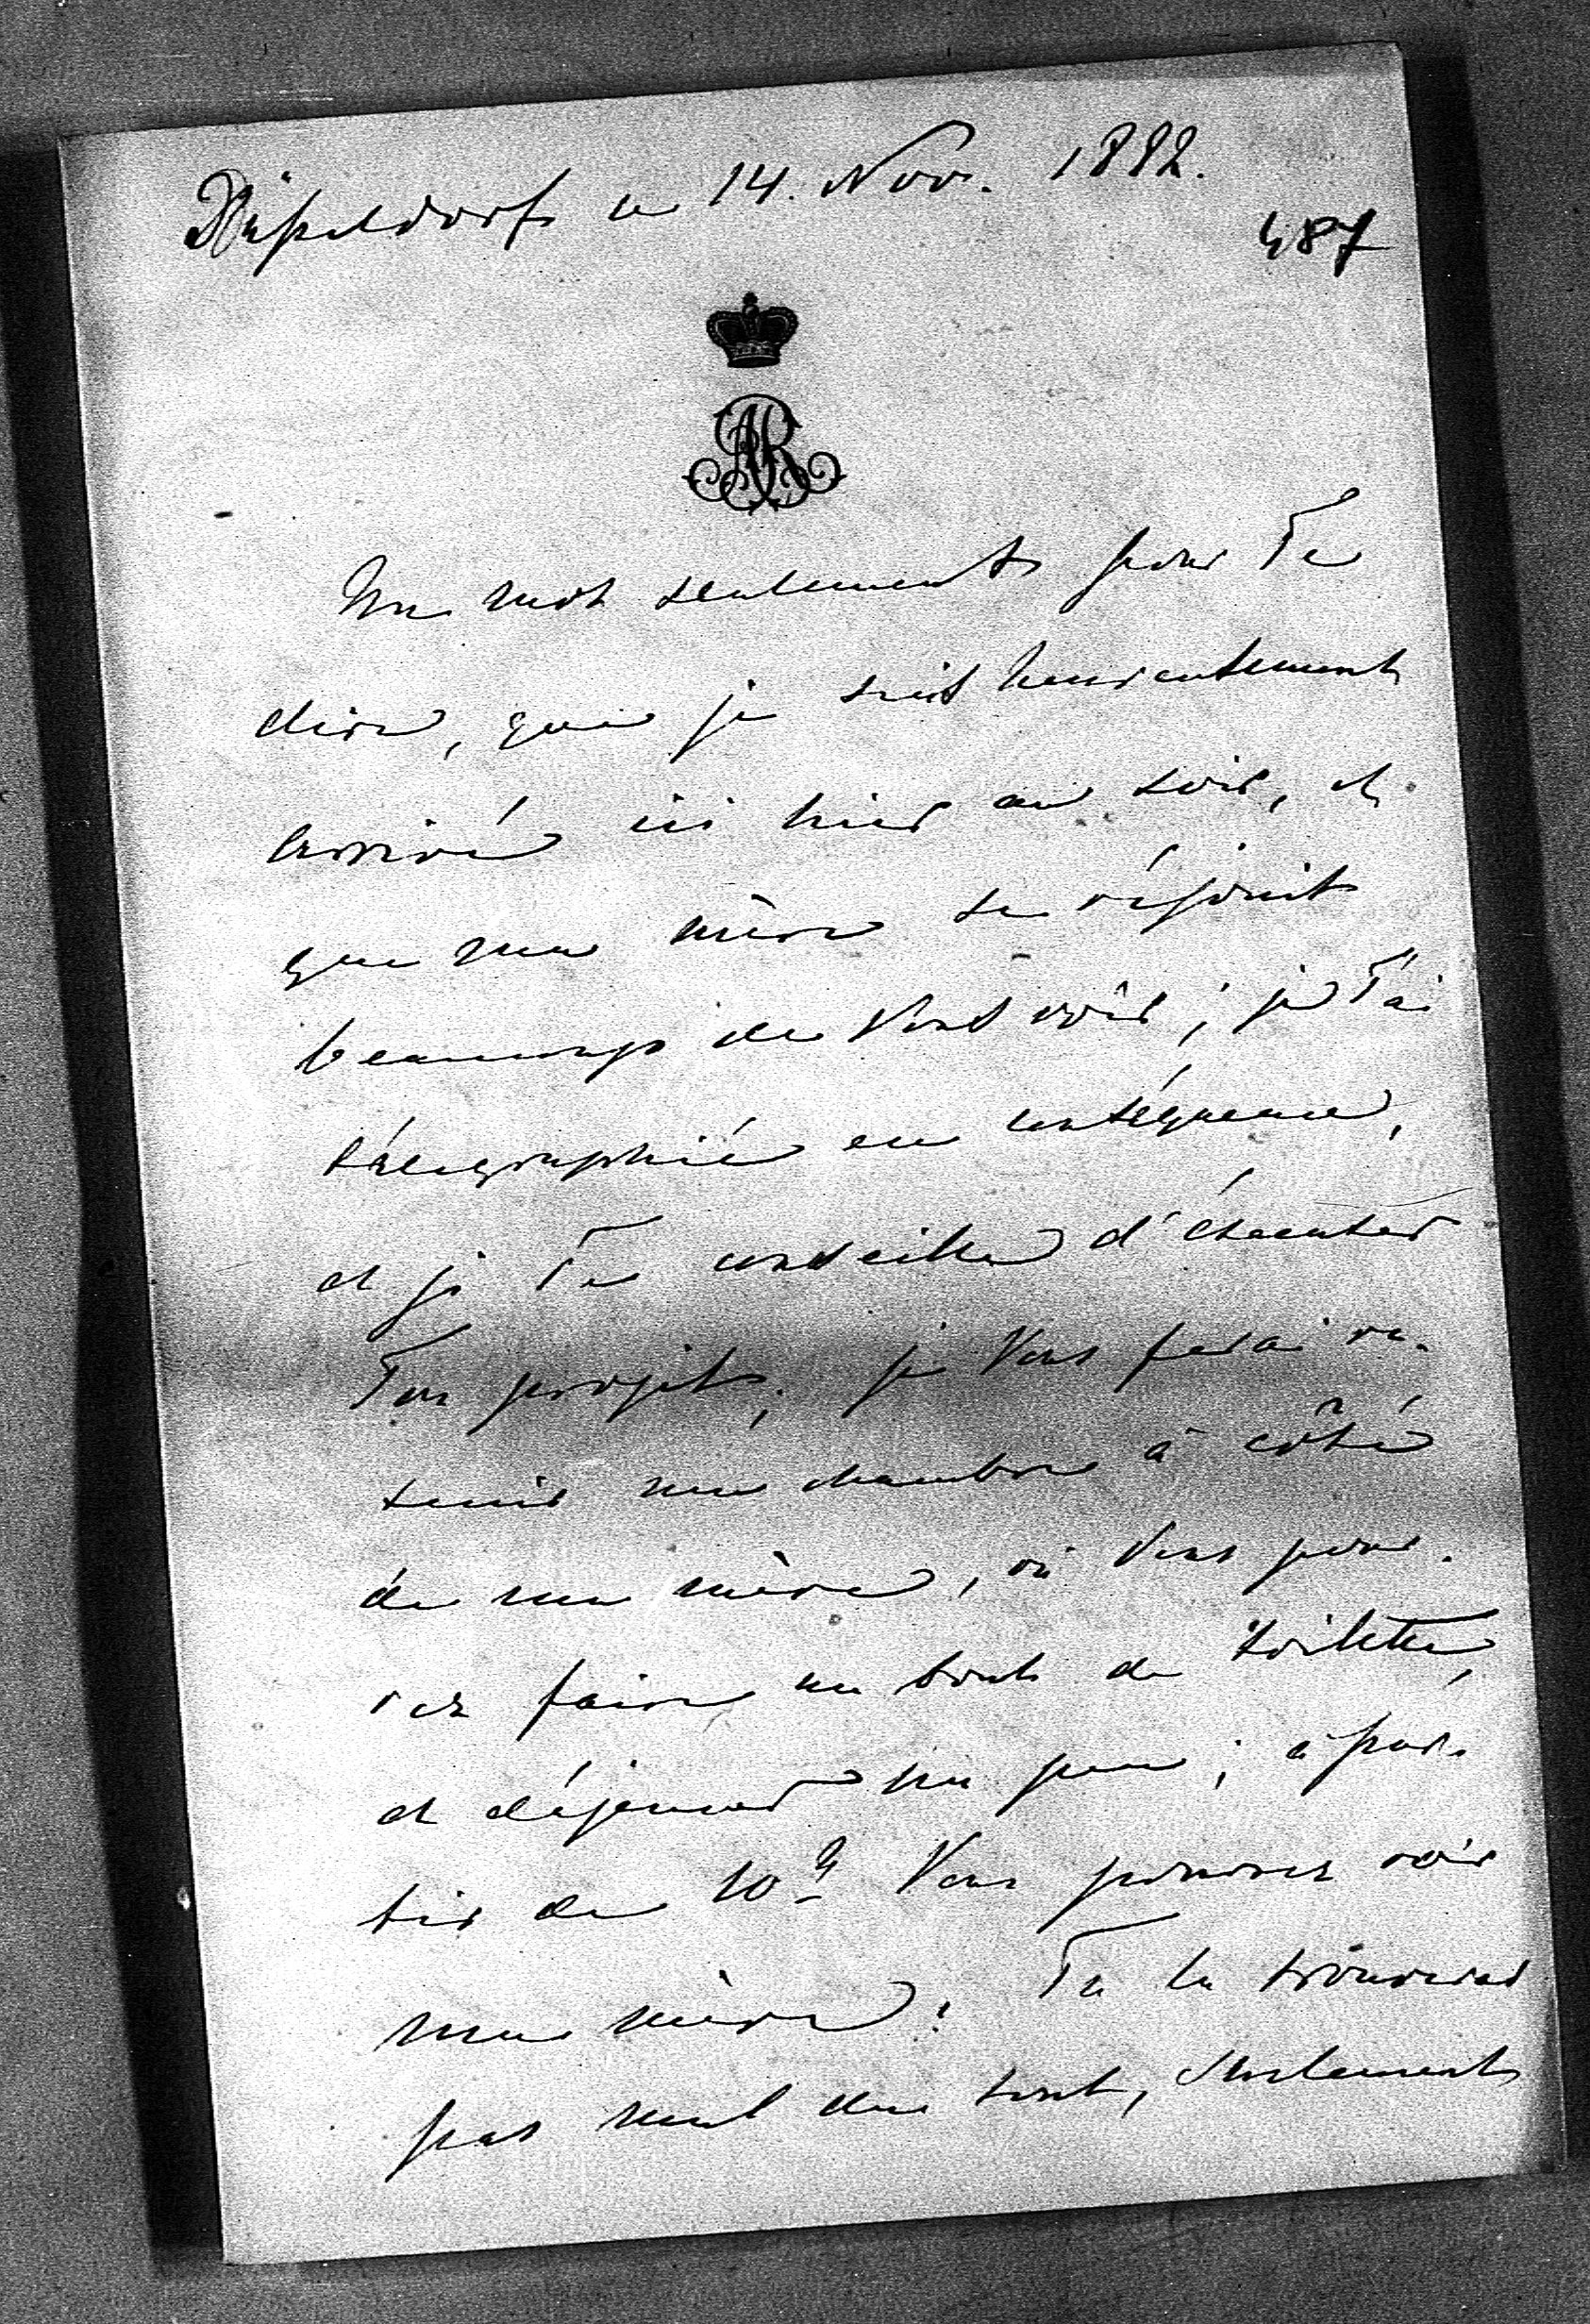 Düsseldorf le 14. Nov. 1882.
487
AR
Un mot seulement pour Te
dire, que je suis heureusement
arrivé ici hier au soir, et
que ma mère se réjouit
beaucoup de Vous voir; je T'ai
télégraphié en conséquence,
et je Te conseille d'éxecuter
Ton projet; je Vous ferai re-
tenir une chambre à côté
de ma mère, où Vous pour-
rez faire un bout de toilette,
et déjeuner un peu; à par-
tir de 10h Vous pourrez voir
ma mère. Tu la trouveras
pas mal du tout, seulement